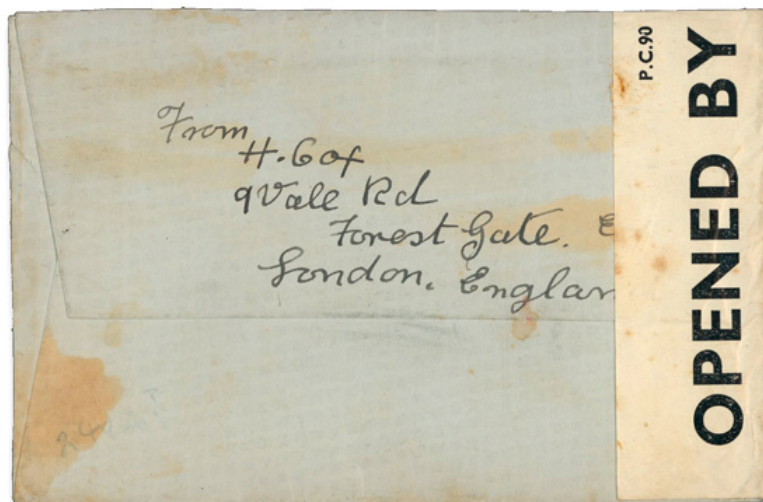 From
H. Cox
9 Vale Rd
Forest Gate. E
London. Englan
P.C.90
OPENED BY